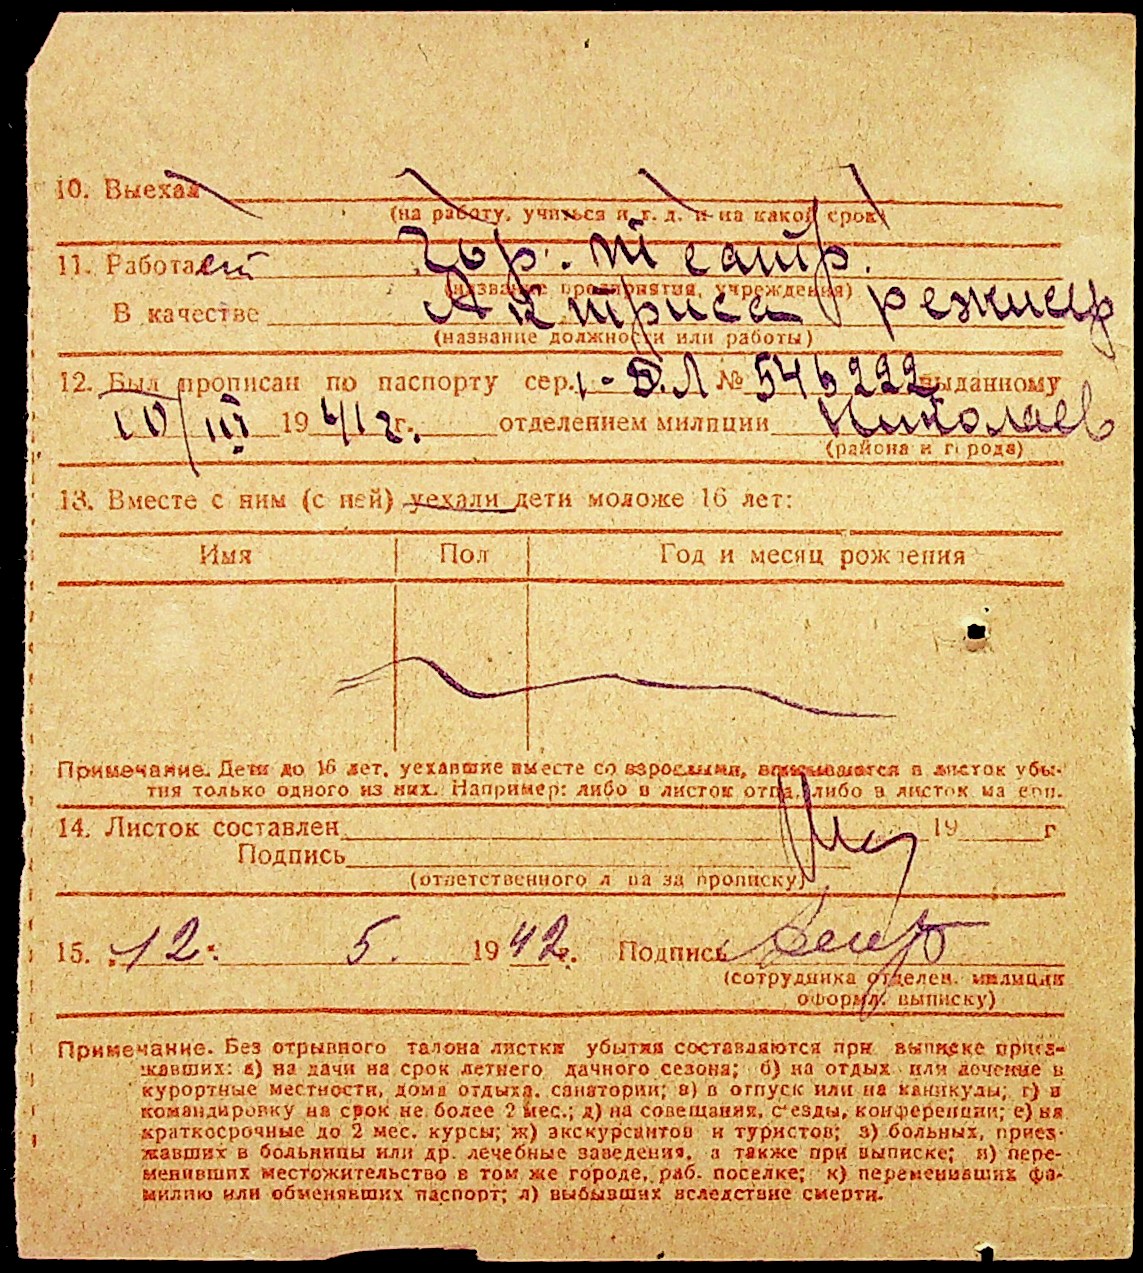 10. Выехал
(на работу, учиться и т. д. и на какой срок)
11. Работает Гор. театр.
(название предприятия, учреждения)
В качестве Актриса режиссер
(название должности или работы)
12. Был прописан по паспорту сер. № 546222 выданному
10/III 1941 г. отделением милиции Николаев
(района и города)
13. Вместе с ним (с ней) уехали дети моложе 16 лет:
Имя Пол Год и месяц рождения
Примечание. Дети до 16 лет, уехавшие вместе со взрослыми, вписываются в листок убы-
тия только одного из них. Например: либо в листок отца, либо в листок матери.
14. Листок составлен 19 г
Подпись
(ответственного лица за прописку)
15. 12. 5. 1942 г. Подпись
(сотрудника отделен. милиции
оформл. выписку)
Примечание. Без отрывного талона листки убытия составляются при выписке приез-
жавших: а) на дачи на срок летнего дачного сезона; б) на отдых или лечение в
курортные местности, дома отдыха, санатории; в) в отпуск или на каникулы; г) в
командировку на срок не более 2 мес.; д) на совещания, с'езды, конференции; е) на
краткосрочные до 2 мес. курсы; ж) экскурсантов и туристов; з) больных, приез-
жавших в больницы или др. лечебные заведения, а также при выписке; и) пере-
менивших местожительство в том же городе, раб. поселке; к) переменивших фа-
милию или обменявших паспорт; л) выбывших вследствие смерти.